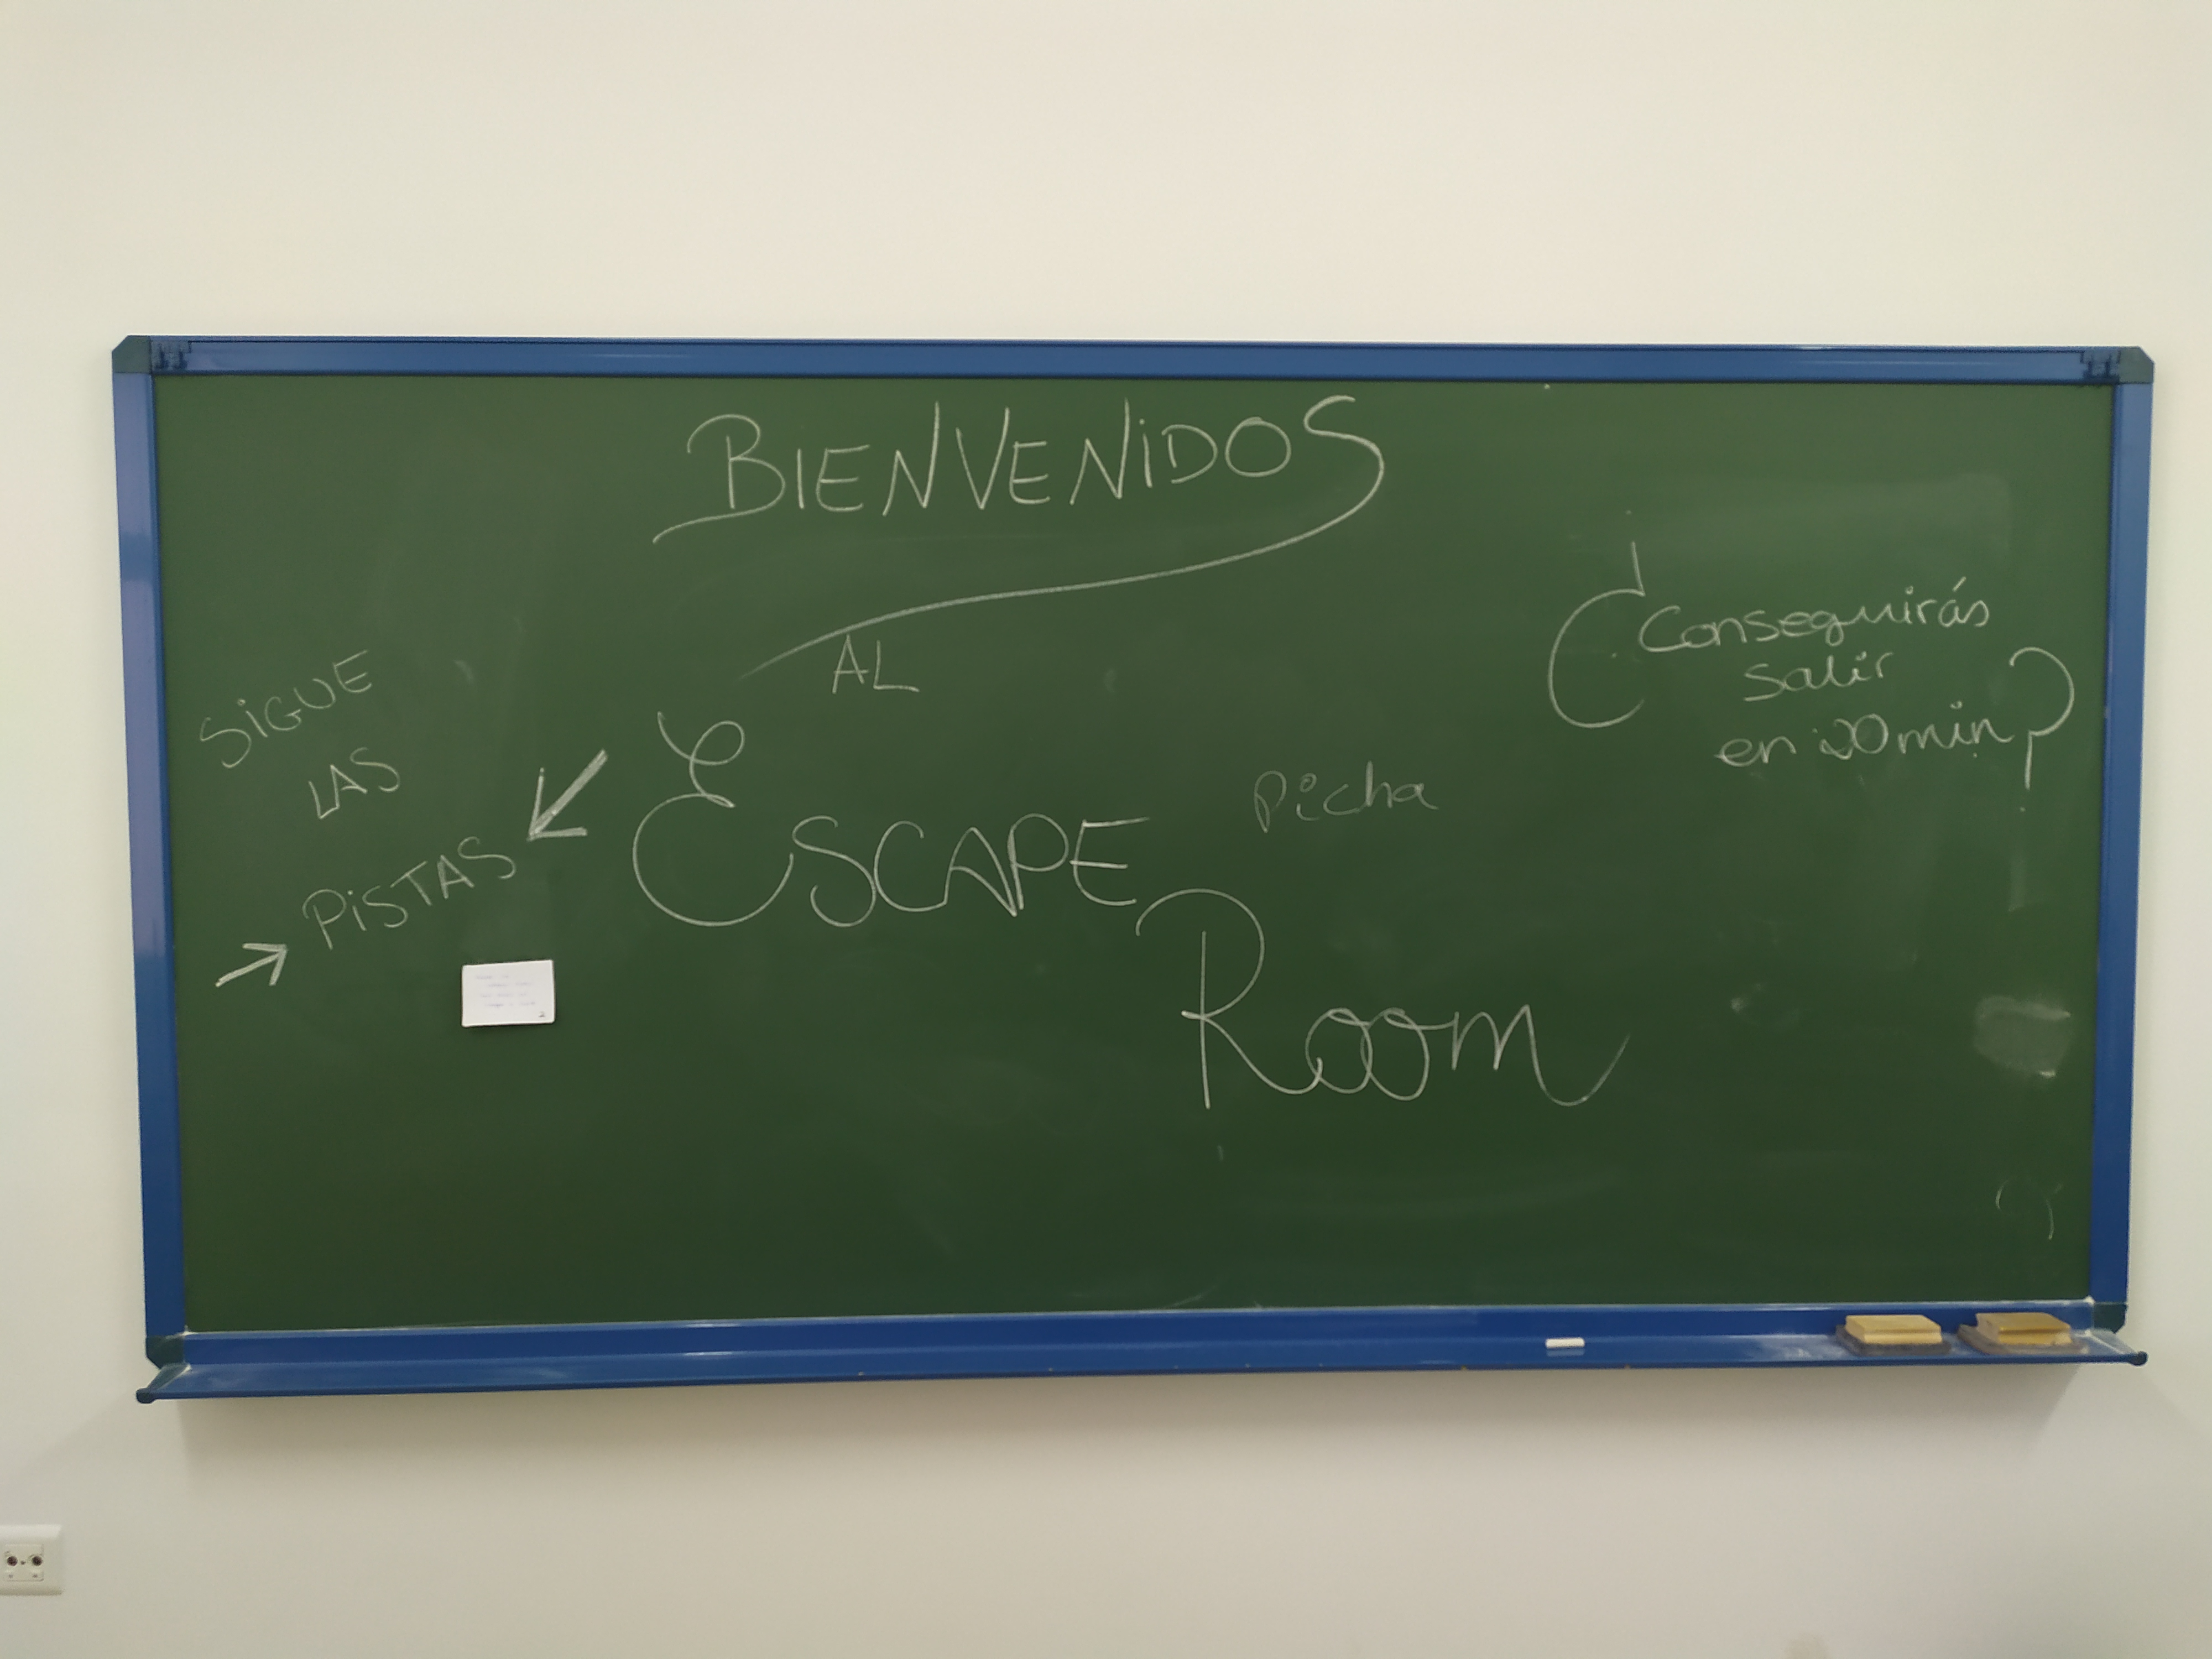 BIENVENIDOS
AL
ESCAPE
Picha
Room
SiGUE
LAS
PiSTAS
¿Conseguirás
salir
en 20 min?